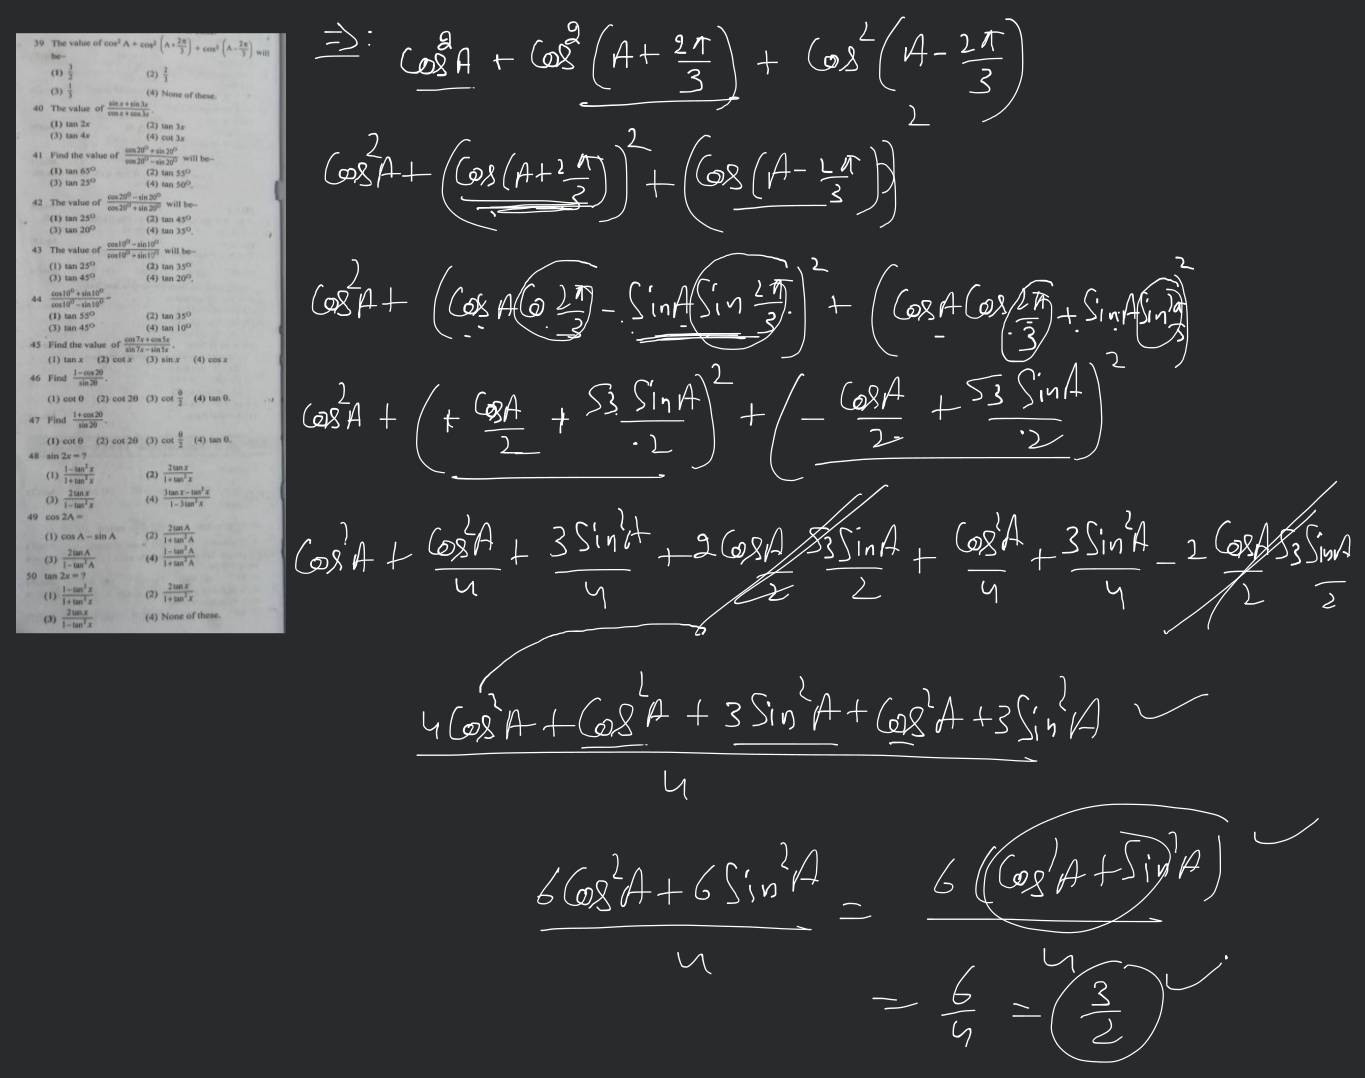 39 The value of cos² A + cos² (A + 2π/3) + cos² (A - 2π/3) will
be-
(1) 3/2 (2) 2/3
(3) 1/3 (4) None of these.
40 The value of (sin x + sin 3x)/(cos x + cos 3x)
(1) tan 2x (2) tan 3x
(3) tan 4x (4) cot 3x
41 Find the value of (cos 20° + sin 20°)/(cos 20° - sin 20°) will be-
(1) tan 65° (2) tan 55°
(3) tan 25° (4) tan 50°.
42 The value of (cos 20° - sin 20°)/(cos 20° + sin 20°) will be-
(1) tan 25° (2) tan 45°
(3) tan 20° (4) tan 35°.
43 The value of (cos 10° - sin 10°)/(cos 10° + sin 10°) will be-
(1) tan 25° (2) tan 35°
(3) tan 45° (4) tan 20°.
44 (cos 10° + sin 10°)/(cos 10° - sin 10°) =
(1) tan 55° (2) tan 35°
(3) tan 45° (4) tan 10°
45 Find the value of (cos 7x + cos 5x)/(sin 7x - sin 5x).
(1) tan x (2) cot x (3) sin x (4) cos x
46 Find (1 - cos 2θ)/(sin 2θ).
(1) cot θ (2) cot 2θ (3) cot θ/2 (4) tan θ.
47 Find (1 + cos 2θ)/(sin 2θ).
(1) cot θ (2) cot 2θ (3) cot θ/2 (4) tan θ.
48 sin 2x = ?
(1) (1 - tan² x)/(1 + tan² x) (2) (2 tan x)/(1 + tan² x)
(3) (2 tan x)/(1 - tan² x) (4) (3 tan x - tan³ x)/(1 - 3 tan² x)
49 cos 2A =
(1) cos A - sin A (2) (2 tan A)/(1 + tan² A)
(3) (2 tan A)/(1 - tan² A) (4) (1 - tan² A)/(1 + tan² A)
50 tan 2x = ?
(1) (1 - tan² x)/(1 + tan² x) (2) (2 tan x)/(1 + tan² x)
(3) (2 tan x)/(1 - tan² x) (4) None of these.
⇒: Cos²A + Cos²(A + 2π/3) + Cos²(A - 2π/3)
Cos²A + (Cos(A + 2π/3))² + (Cos(A - 2π/3))²
Cos²A + (CosA Cos 2π/3 - SinA Sin 2π/3)² + (CosA Cos 2π/3 + SinA Sin 2π/3)²
Cos²A + (+ CosA/2 + √3 SinA/2)² + (- CosA/2 + √3 SinA/2)²
Cos²A + Cos²A/4 + 3Sin²A/4 + 2 CosA/2 √3 SinA/2 + Cos²A/4 + 3Sin²A/4 - 2 CosA/2 √3 SinA/2
(4Cos²A + Cos²A + 3Sin²A + Cos²A + 3Sin²A)/4
(6Cos²A + 6Sin²A)/4 = 6(Cos²A + Sin²A)/4
= 6/4 = 3/2